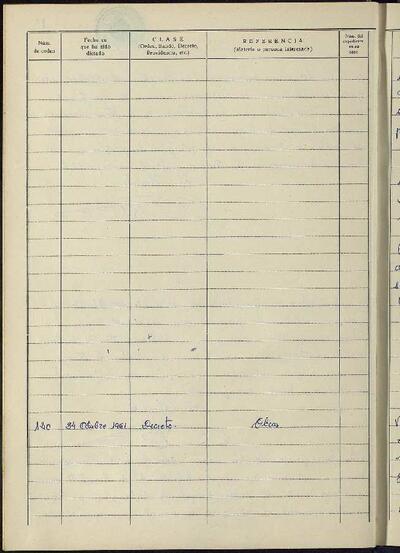 Núm. de orden
Fecha en que ha sido dictado
CLASE
(Orden, Bando, Decreto, Providencia, etc.)
REFERENCIA
(Materia o persona interesada)
Núm. del expediente en su caso
140 24 Octubre 1961 Decreto. Obras